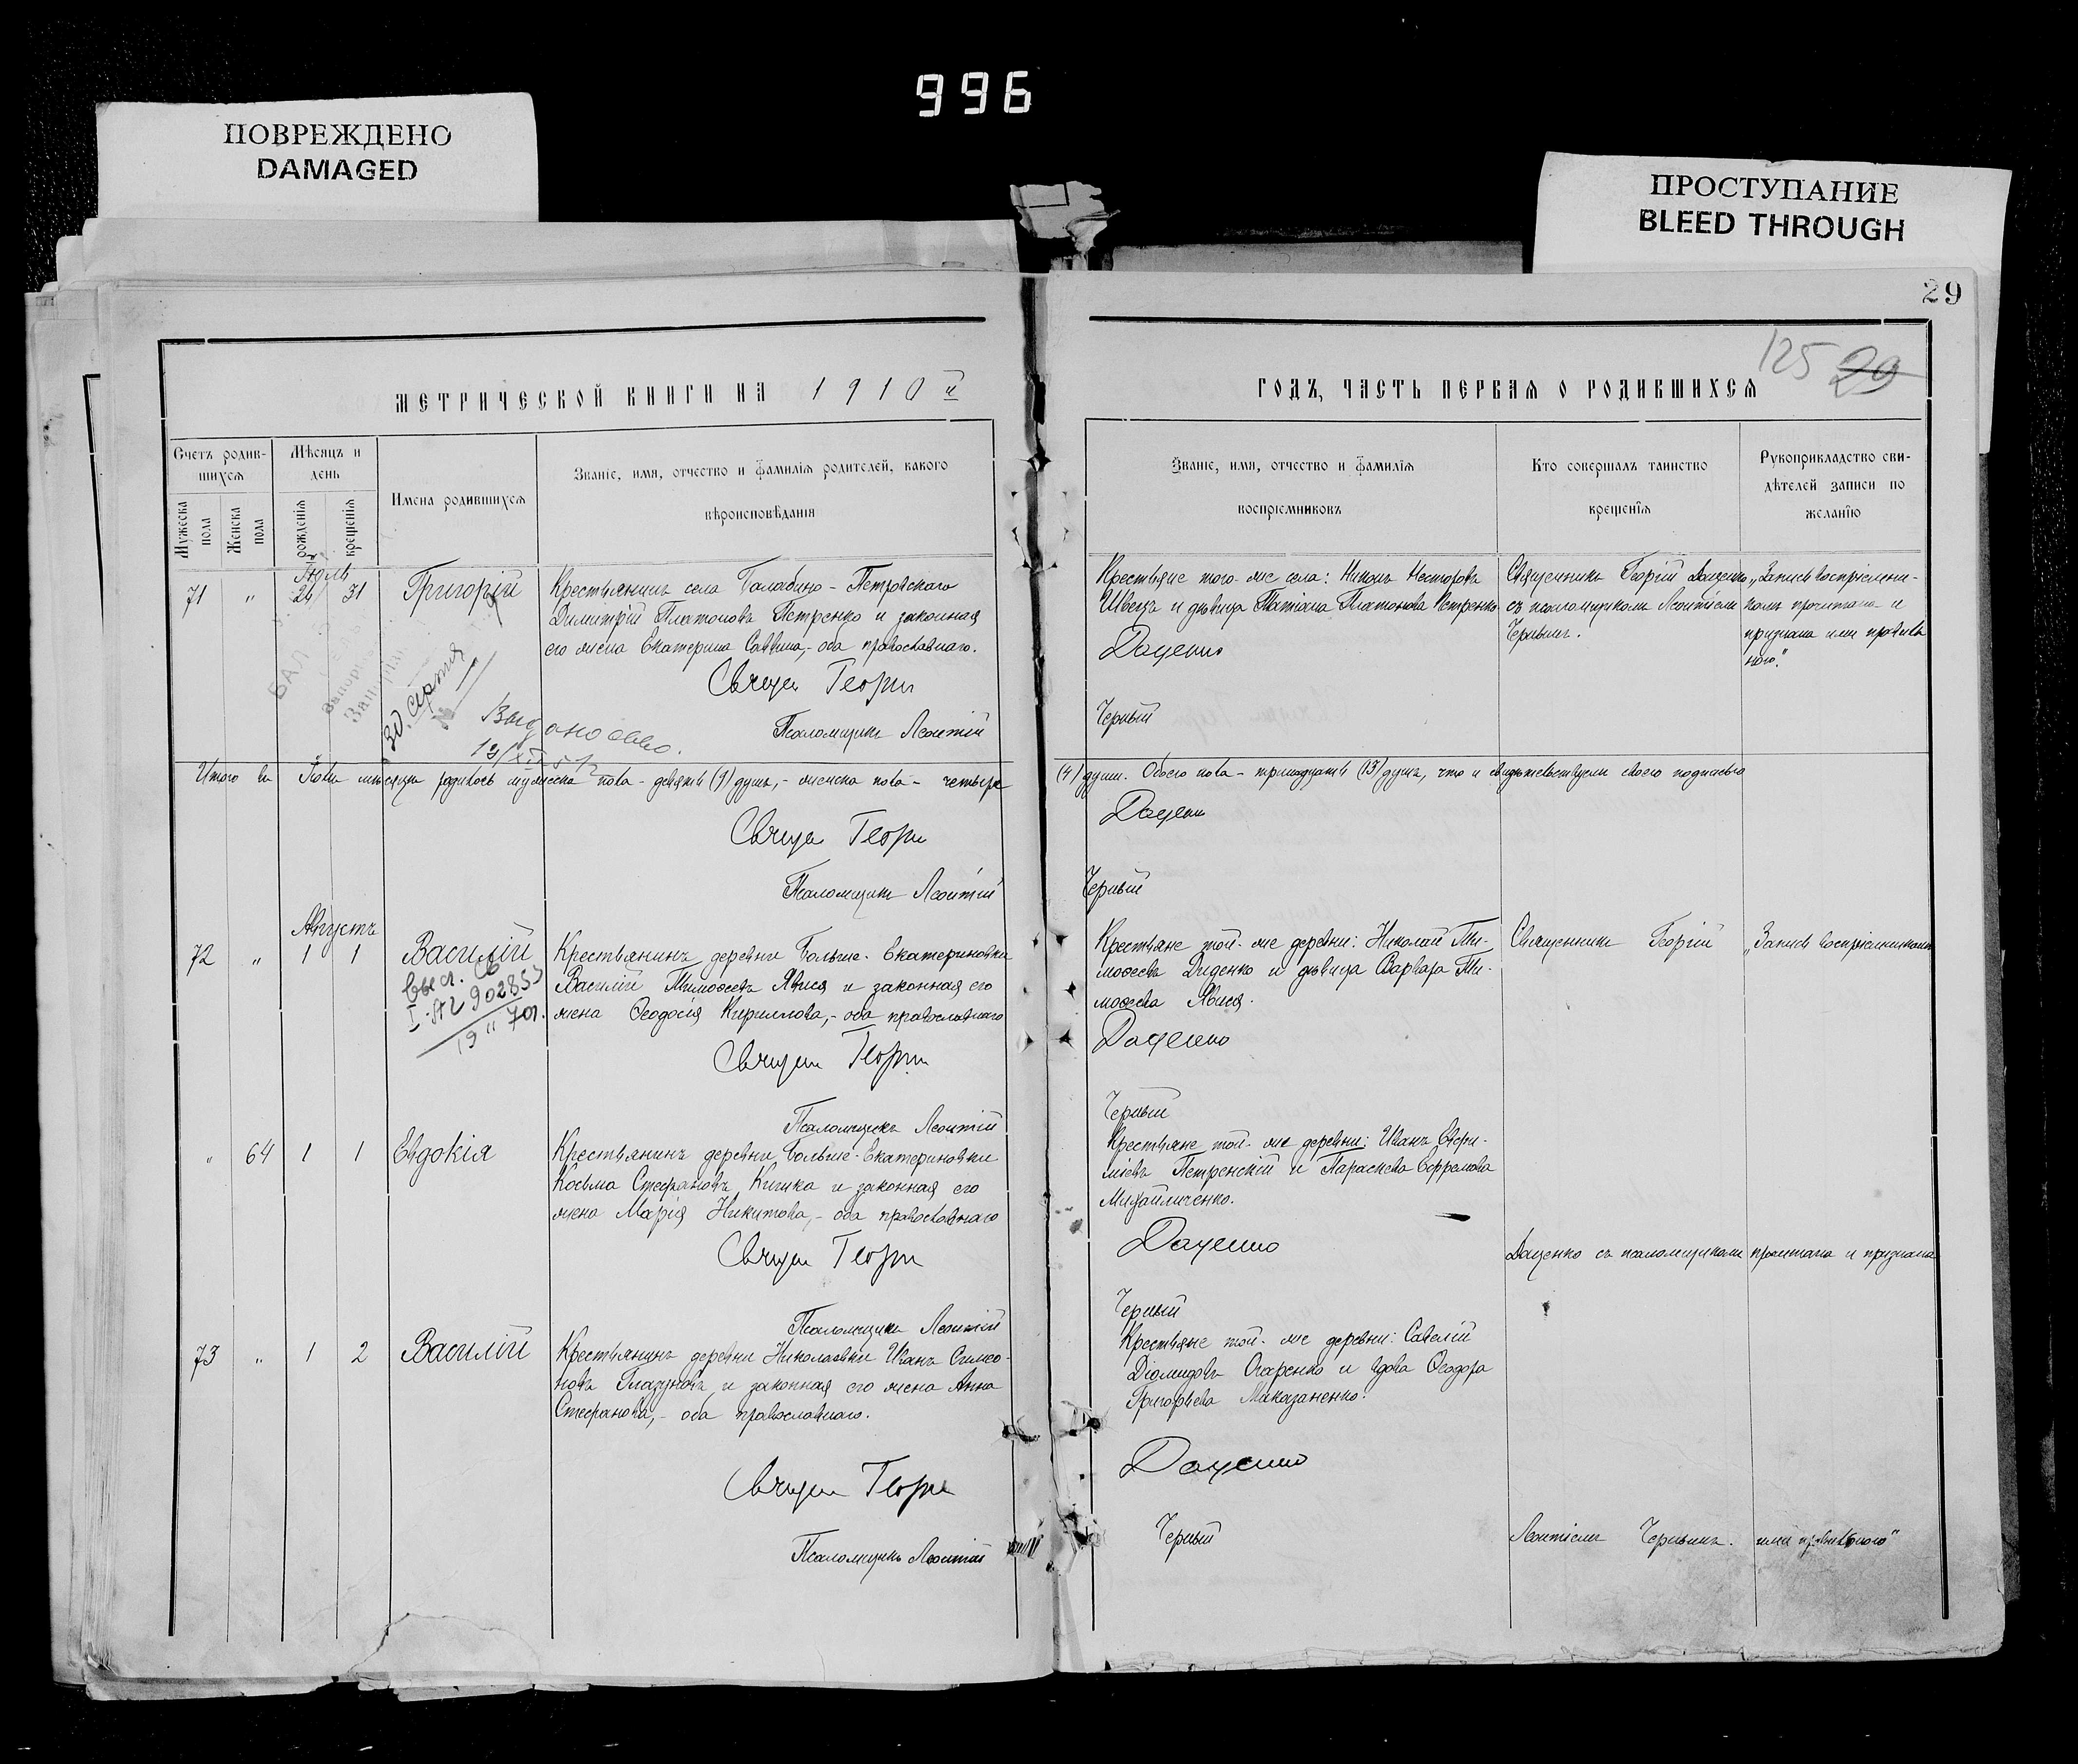 996
ПОВРЕЖДЕНО
DAMAGED
ПРОСТУПАНИЕ
BLEED THROUGH
29
125 29
МЕТРИЧЕСКОЙ КНИГИ НА 1910й
ГОДЪ, ЧАСТЬ ПЕРВАЯ О РОДИВШИХСЯ
Счетъ родив-
шихся
Мужеска
пола
Женска
пола
Мѣсяцъ и
день
рожденія
крещенія
Имена родившихся
Званіе, имя, отчество и фамилія родителей, какого
вѣроисповѣданія
Званіе, имя, отчество и фамилія
воспріемниковъ
Кто совершалъ таинство
крещенія
Рукоприкладство сви-
дѣтелей записи по
желанію
Іюль
71 " 24 31 Григорій
Крестьянинъ села Балабино-Петровскаго
Димитрій Платоновъ Петренко и законная
его жена Екатерина Саввина,- оба православнаго.
Священ Георги
Псаломщикъ Леонтій
Крестьяне того-же села: Никонъ Несторовъ
Швецъ и дѣвица Татіана Платонова Петренко
Даценко
Черный
Священникъ Георгій Даценко
съ псаломщикомъ Леонтіемъ
Чернымъ.
„Запись воспріемни-
камъ прочитана и
признана ими правиль
ною."
Итого въ Іюлѣ мѣсяцѣ родилось мужеска пола - девять (9) душъ,- женска пола - четыре
(4) души. Обоего пола - тринадцать (13) душъ, что и свидѣтельствуемъ своею подписью
Священ Георги
Даценко
Псаломщикъ Леонтій
Черный
Августъ
72 " 1 1 Василій
I-АИ 902853
19 " 70г.
Крестьянинъ деревни Больше-Екатериновки
Василій Тимоѳеевъ Явися и законная его
жена Ѳеодосія Кириллова,- оба православнаго
Священ Георги
Псаломщикъ Леонтій
Крестьяне той-же деревни: Николай Ти-
моѳеевъ Диденко и дѣвица Варвара Ти-
моѳеева Явися.
Даценко
Черный
Священникъ Георгій
„Запись воспріемникамъ
" 64 1 1 Евдокія
Крестьянинъ деревни Больше-Екатериновки
Косьма Стефановъ Кичка и законная его
жена Марія Никитова,- оба православнаго
Священ Георги
Псаломщикъ Леонтій
Крестьяне той-же деревни: Иванъ Евфи-
міевъ Петренскій и Параскева Ефремова
Михайличенко.
Даценко
Черный
Даценко съ псаломщикомъ
прочитана и признана
73 " 1 2 Василій
Крестьянинъ деревни Николаевки Иванъ Симео-
новъ Глазуновъ и законная его жена Анна
Стефанова,- оба православнаго.
Священ Георги
Псаломщикъ Леонтій
Крестьяне той-же деревни: Савелій
Діомидовъ Очаренко и вдова Ѳеодора
Григорьева Маказаненко.
Даценко
Черный
Леонтіемъ Чернымъ.
ими правильною"